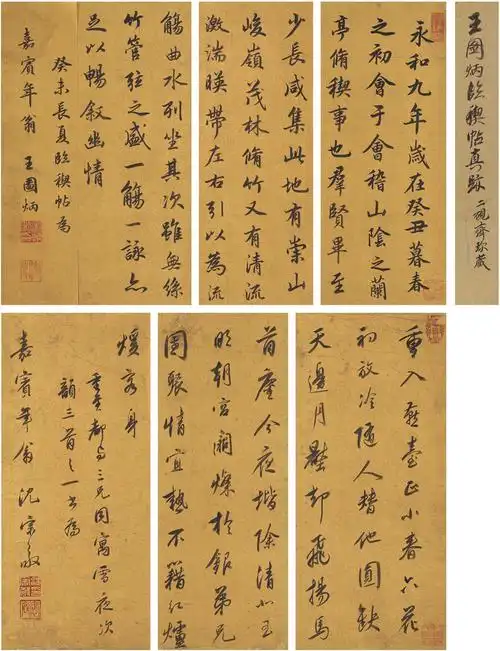 王國炳臨禊帖真跡 二 齋珍藏
永和九年歲在癸丑暮春
之初會于會稽山陰之蘭
亭脩禊事也羣賢畢至
少長咸集此地有崇山
峻嶺茂林脩竹又有清流
激湍暎帶左右引以為流
觴曲水列坐其次雖無絲
竹管弦之盛一觴一詠亦
足以暢敘幽情
癸未長夏臨禊帖為
嘉賓年翁 王國炳
重入燕臺正小春六花
初放冷隨人替他圓缺
天邊月壓却飛揚馬
首塵今夜堦除清似玉
明朝宮闕燦於銀弟兄
圍聚情宜熱不藉紅爐
煖客身
重都与三兄同寓雪夜次
韻三首之一書為
嘉賓年翁 沈宗敬